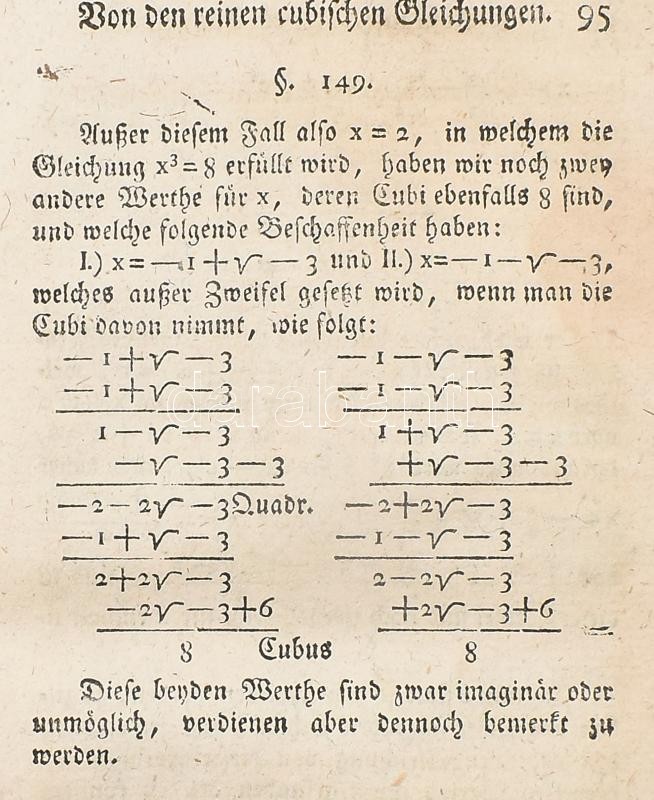 Von den reinen cubischen Gleichungen. 95
§. 149.
Außer diesem Fall also x = 2, in welchem die
Gleichung x³ = 8 erfüllt wird, haben wir noch zwey
andere Werthe für x, deren Cubi ebenfalls 8 sind,
und welche folgende Beschaffenheit haben:
I.) x = — 1 + √ — 3 und II.) x = — 1 — √ — 3,
welches außer Zweifel gesetzt wird, wenn man die
Cubi davon nimmt, wie folgt:
— 1 + √ — 3 — 1 — √ — 3
— 1 + √ — 3 — 1 — √ — 3
1 — √ — 3 1 + √ — 3
— √ — 3 — 3 + √ — 3 — 3
— 2 — 2√ — 3 Quadr. — 2 + 2√ — 3
— 1 + √ — 3 — 1 — √ — 3
2 + 2√ — 3 2 — 2√ — 3
— 2√ — 3 + 6 + 2√ — 3 + 6
8 Cubus 8
Diese beyden Werthe sind zwar imaginär oder
unmöglich, verdienen aber dennoch bemerkt zu
werden.
darabanth